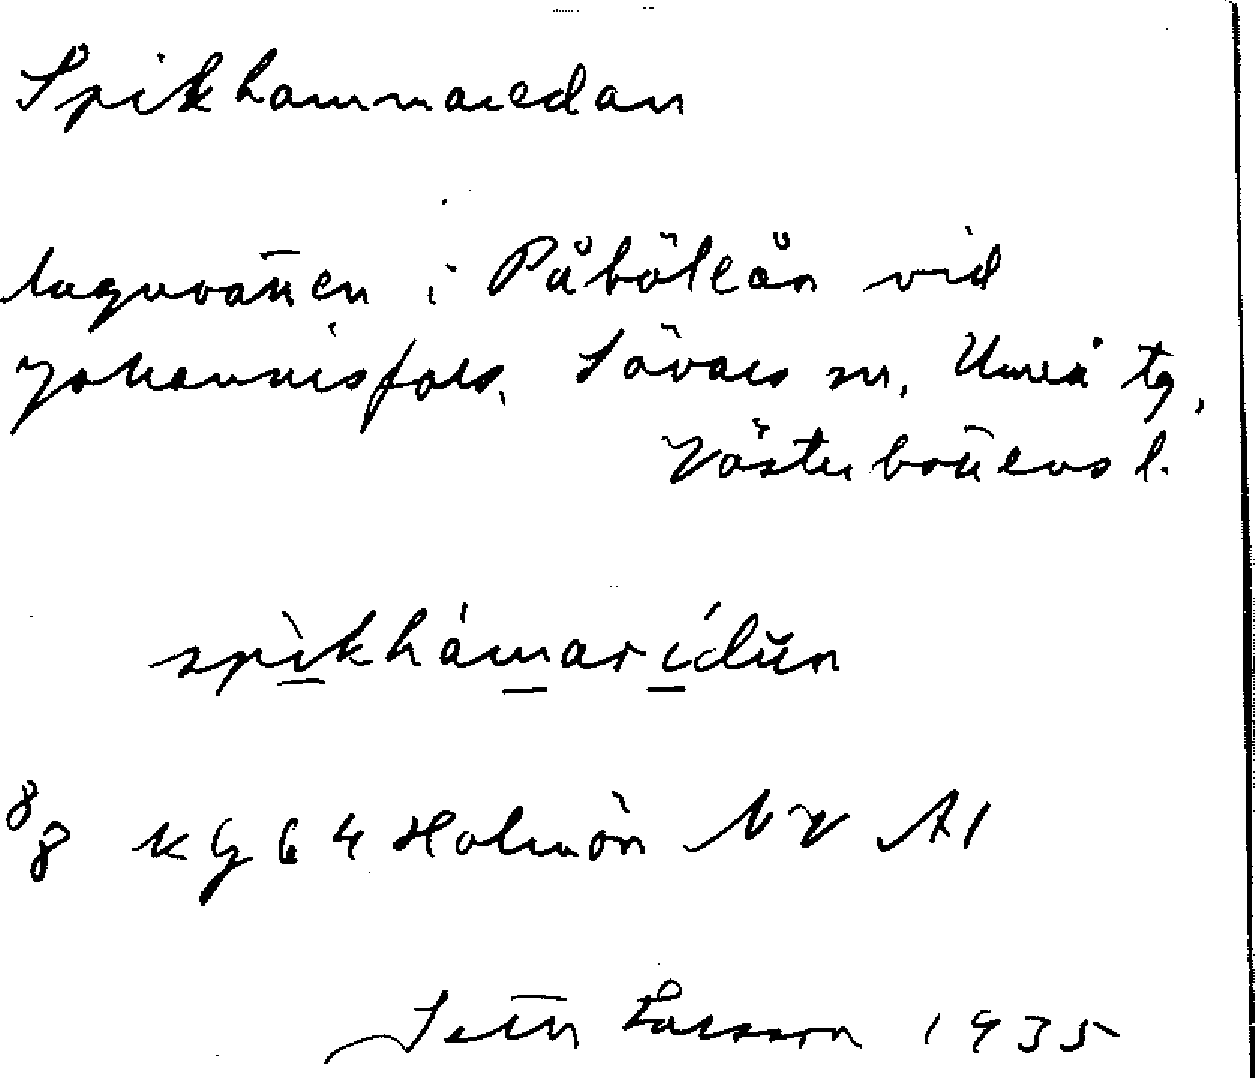 Spikhammaredan
lugnvatten i Påböleån vid
Johannisfors, Sävars sn, Umeå tg,
Västerbottens l.
spìkhámarídŭn
8/8 KG 64 Holmön NV A1
Setth Larsson 1935